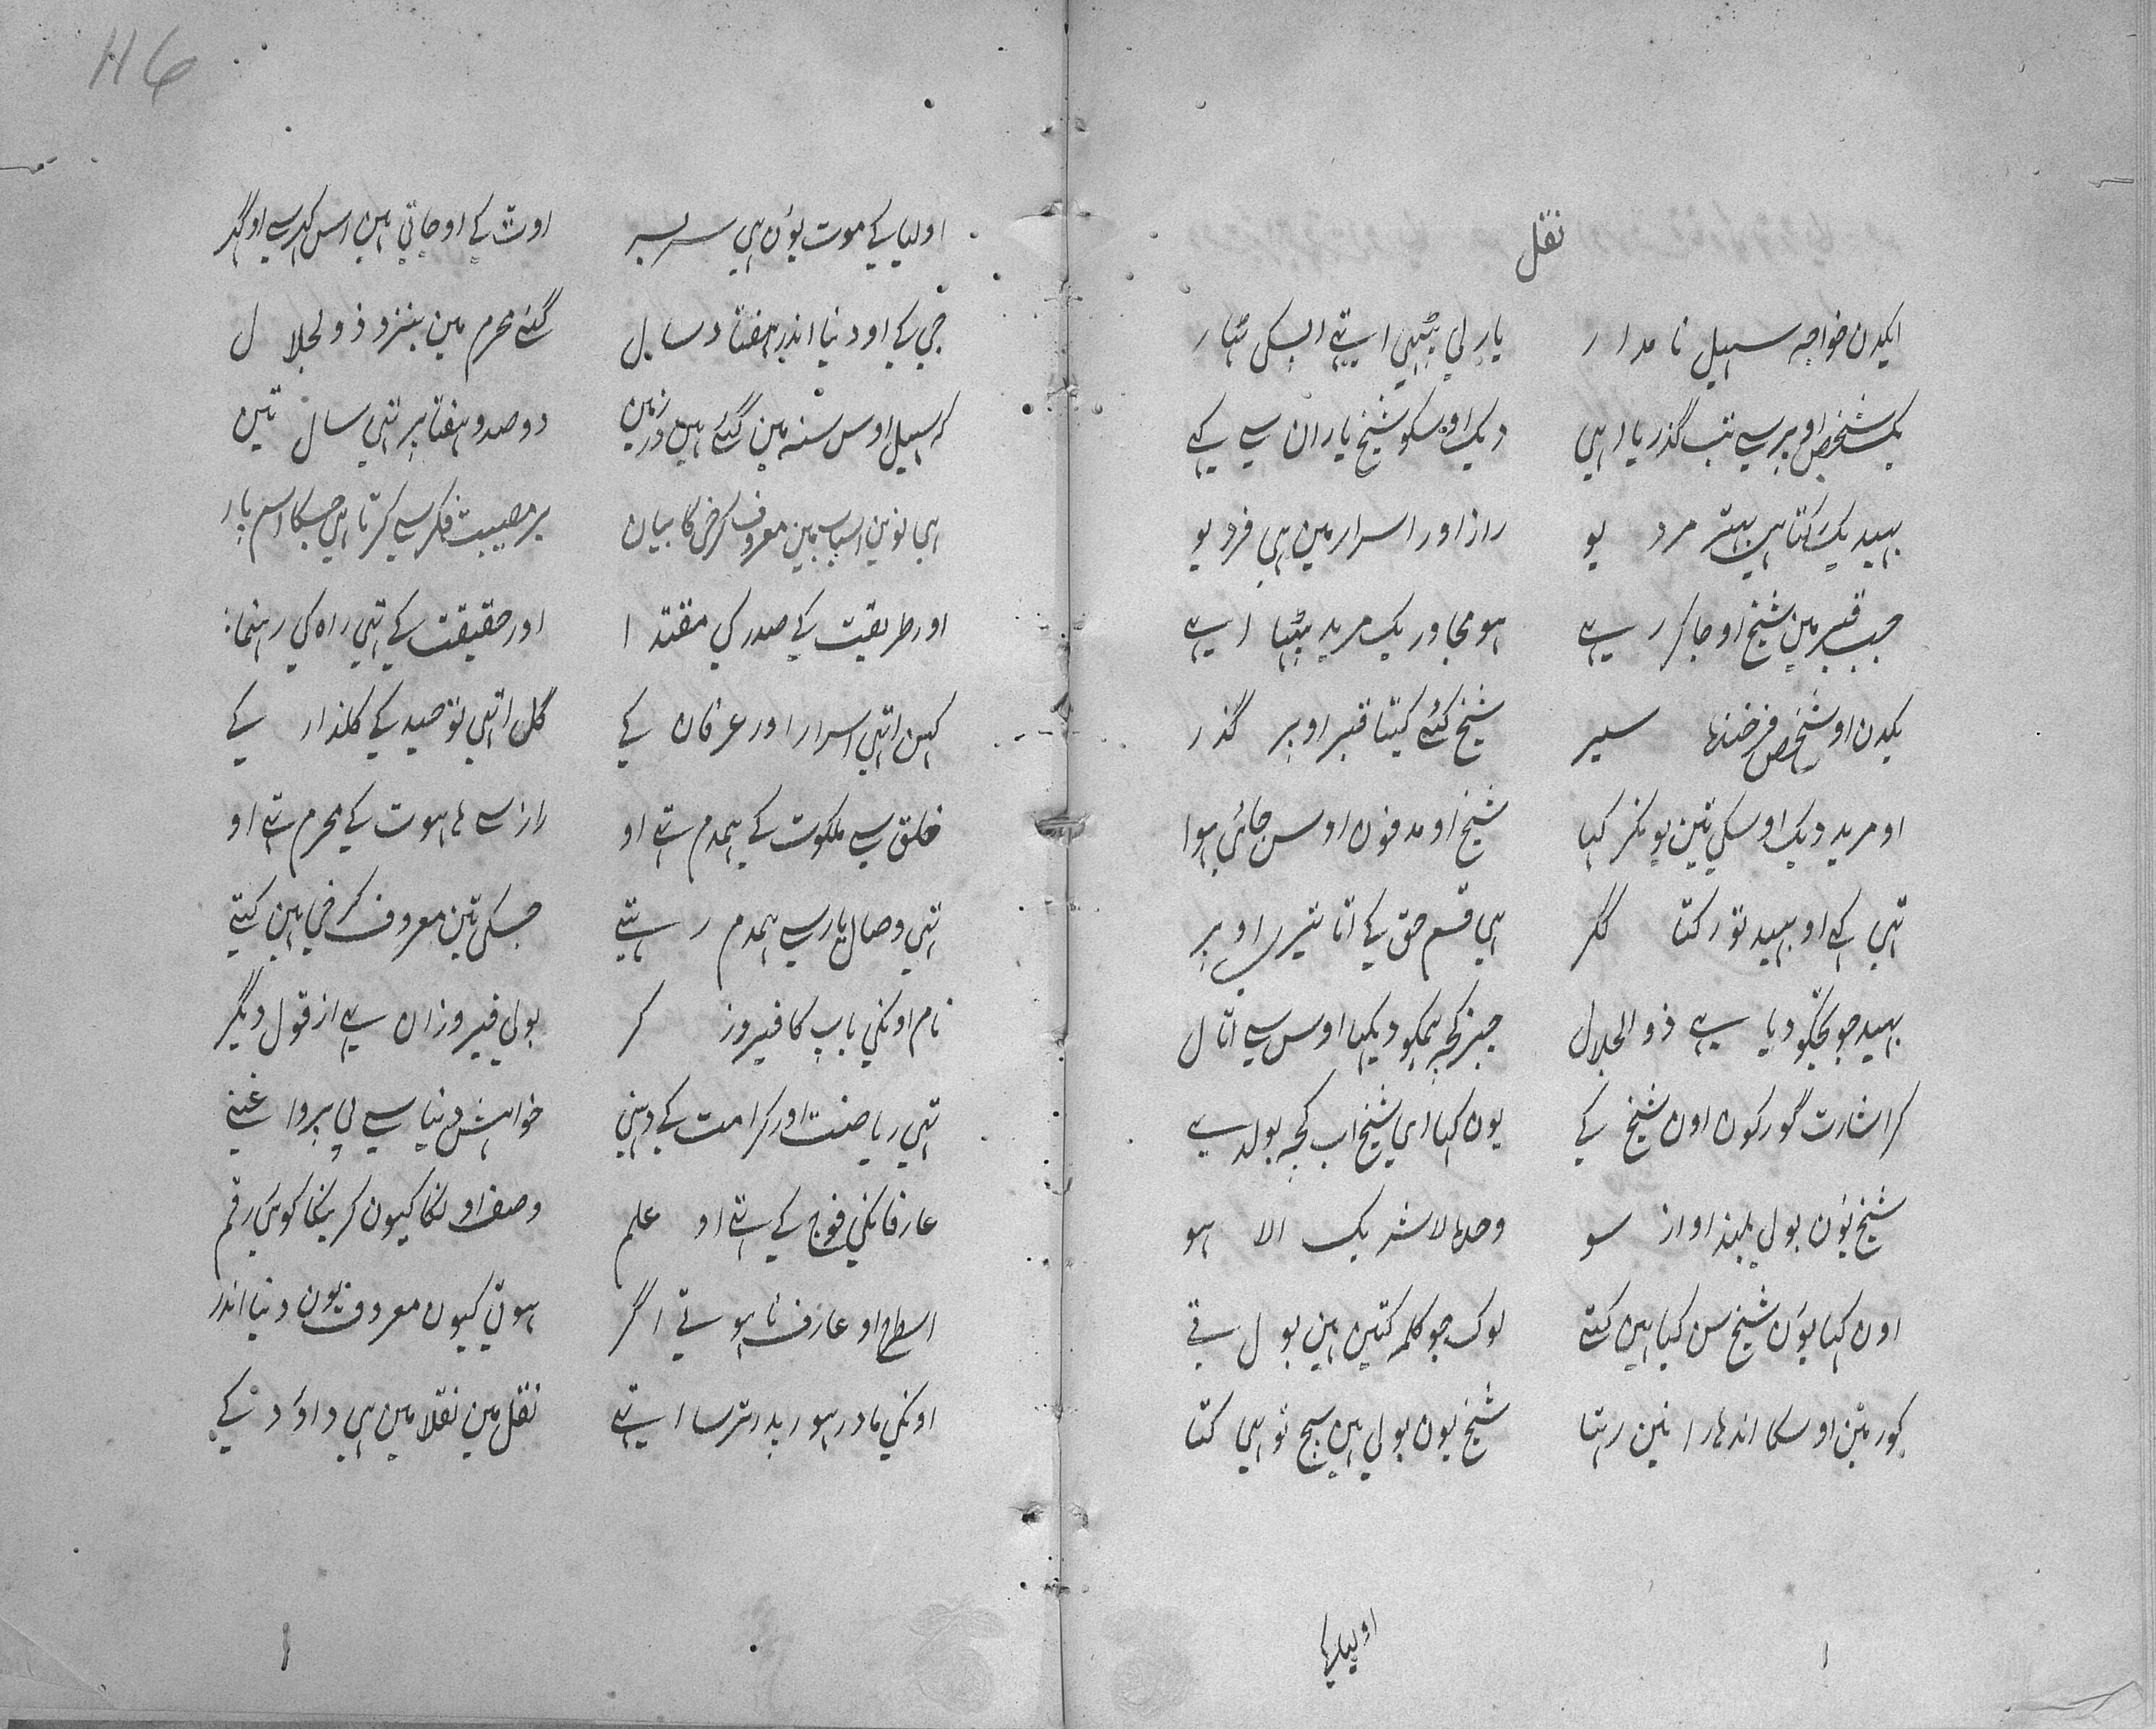 نقل
ایکدن خواجه سہیل نامدار یارلی بیٹھی اتھے ایسکی ٹھار
یک شخص اوپر سے تب گذریا اہی دیک اوسکو شیخ یاران سے کہے
بہید یک رکتا ہی بہتر مرد یو راز اور اسرار مین ہی فرد یو
جب قبر مین شیخ او جاکر رہے ہو مجاور یک مرید بیٹھا اہے
یکدن او شخص فرخندہ سیر شیخ کئے کیتا قبر اوپر گذر
او مرید دیک اوسکی تین یو نکر کہا شیخ او مدفون اوس جائی ہوا
تہی کہے او بہید تو رکتا مگر ہی قسم حق کے اتا تیری اوپر
بہید جو تجکو دیا ہے ذوالجلال چیز کچہ ہمکو دیکہا اوس سے اتال
کر اشارت گور کون اون شیخ کے یون کہا ای شیخ اب کچہ بولدے
شیخ یون بولے بلند اواز سو وحدہ لاشریک الا ہو
اون کہا یون شیخ سن کیا ہین کتے لوک جو کلمہ کتین ہین بولتے
گور مین اوسکا اندھارا نین رہتا شیخ یون بولی ہین سچ تو ہی کتا
اولیا کے
116
اولیا کے موت یون ہی سر بسر اوٹ کے او جاتی ہین اس گہر سے او گہر
جی کے او دنیا اندر ہفتاد سال گئے محرم مین بنزد ذولجلال
کہ سہیل اوس سنہ مین گئے ہین در زمین دو صد و ہفتاد پر تہی سال تین
ہی نوین اسباب مین معروف کرخی کا بیان پر مصیبت فکر سے کرتا ہی جسکا اسم پار
اور طریقت کے صدر کی مقتدا اور حقیقت کے اتہی راہ کی رہنما
کہن اتہی اسرار اور عرفان کے گل اتہی توحید کے گلذار کے
خلق سے ملکوت کے ہمدم تہے او راز سے لاہوت کے محرم تہے او
اتہی وصال یار سے ہمدم رہتے جسکی تین معروف کرخی ہین کہتے
نام اونکی باپ کا فیروز کر بولی فیروزان ہے از قول دیگر
تہی ریاضت اور کرامت کے دہنی خواہش دنیا سے بی پروا غنی
عارفانکی فوج کے تہے او علم وصف اونکا کیون کریگا کوئی رقم
اسطرح او عارف نا ہوتے اگر ہوتی کیون معروف یون دنیا اندر
اونکی مادر ہور پدر ترسا اتھے نقل مین نقلا مین ہی داود کے